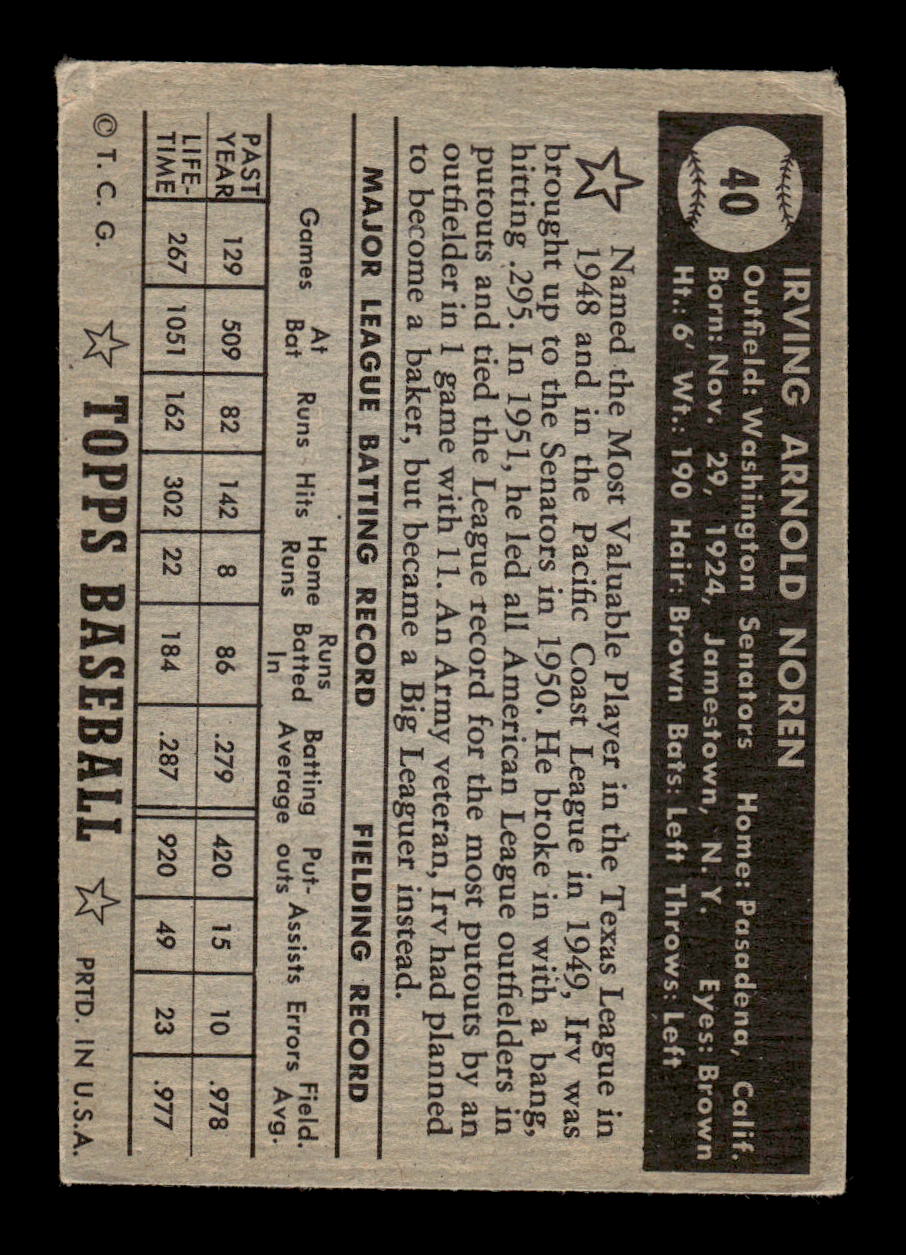 40
IRVING ARNOLD NOREN
Outfield: Washington Senators Home: Pasadena, Calif.
Born: Nov. 29, 1924, Jamestown, N. Y. Eyes: Brown
Ht.: 6' Wt.: 190 Hair: Brown Bats: Left Throws: Left
Named the Most Valuable Player in the Texas League in
1948 and in the Pacific Coast League in 1949, Irv was
brought up to the Senators in 1950. He broke in with a bang,
hitting .295. In 1951, he led all American League outfielders in
putouts and tied the League record for the most putouts by an
outfielder in 1 game with 11. An Army veteran, Irv had planned
to become a baker, but became a Big Leaguer instead.
MAJOR LEAGUE BATTING RECORD FIELDING RECORD
Games At Bat Runs Hits Home Runs Runs Batted In Batting Average Put-outs Assists Errors Field. Avg.
PAST YEAR 129 509 82 142 8 86 .279 420 15 10 .978
LIFE-TIME 267 1051 162 302 22 184 .287 920 49 23 .977
© T. C. G. TOPPS BASEBALL PRTD. IN U.S.A.